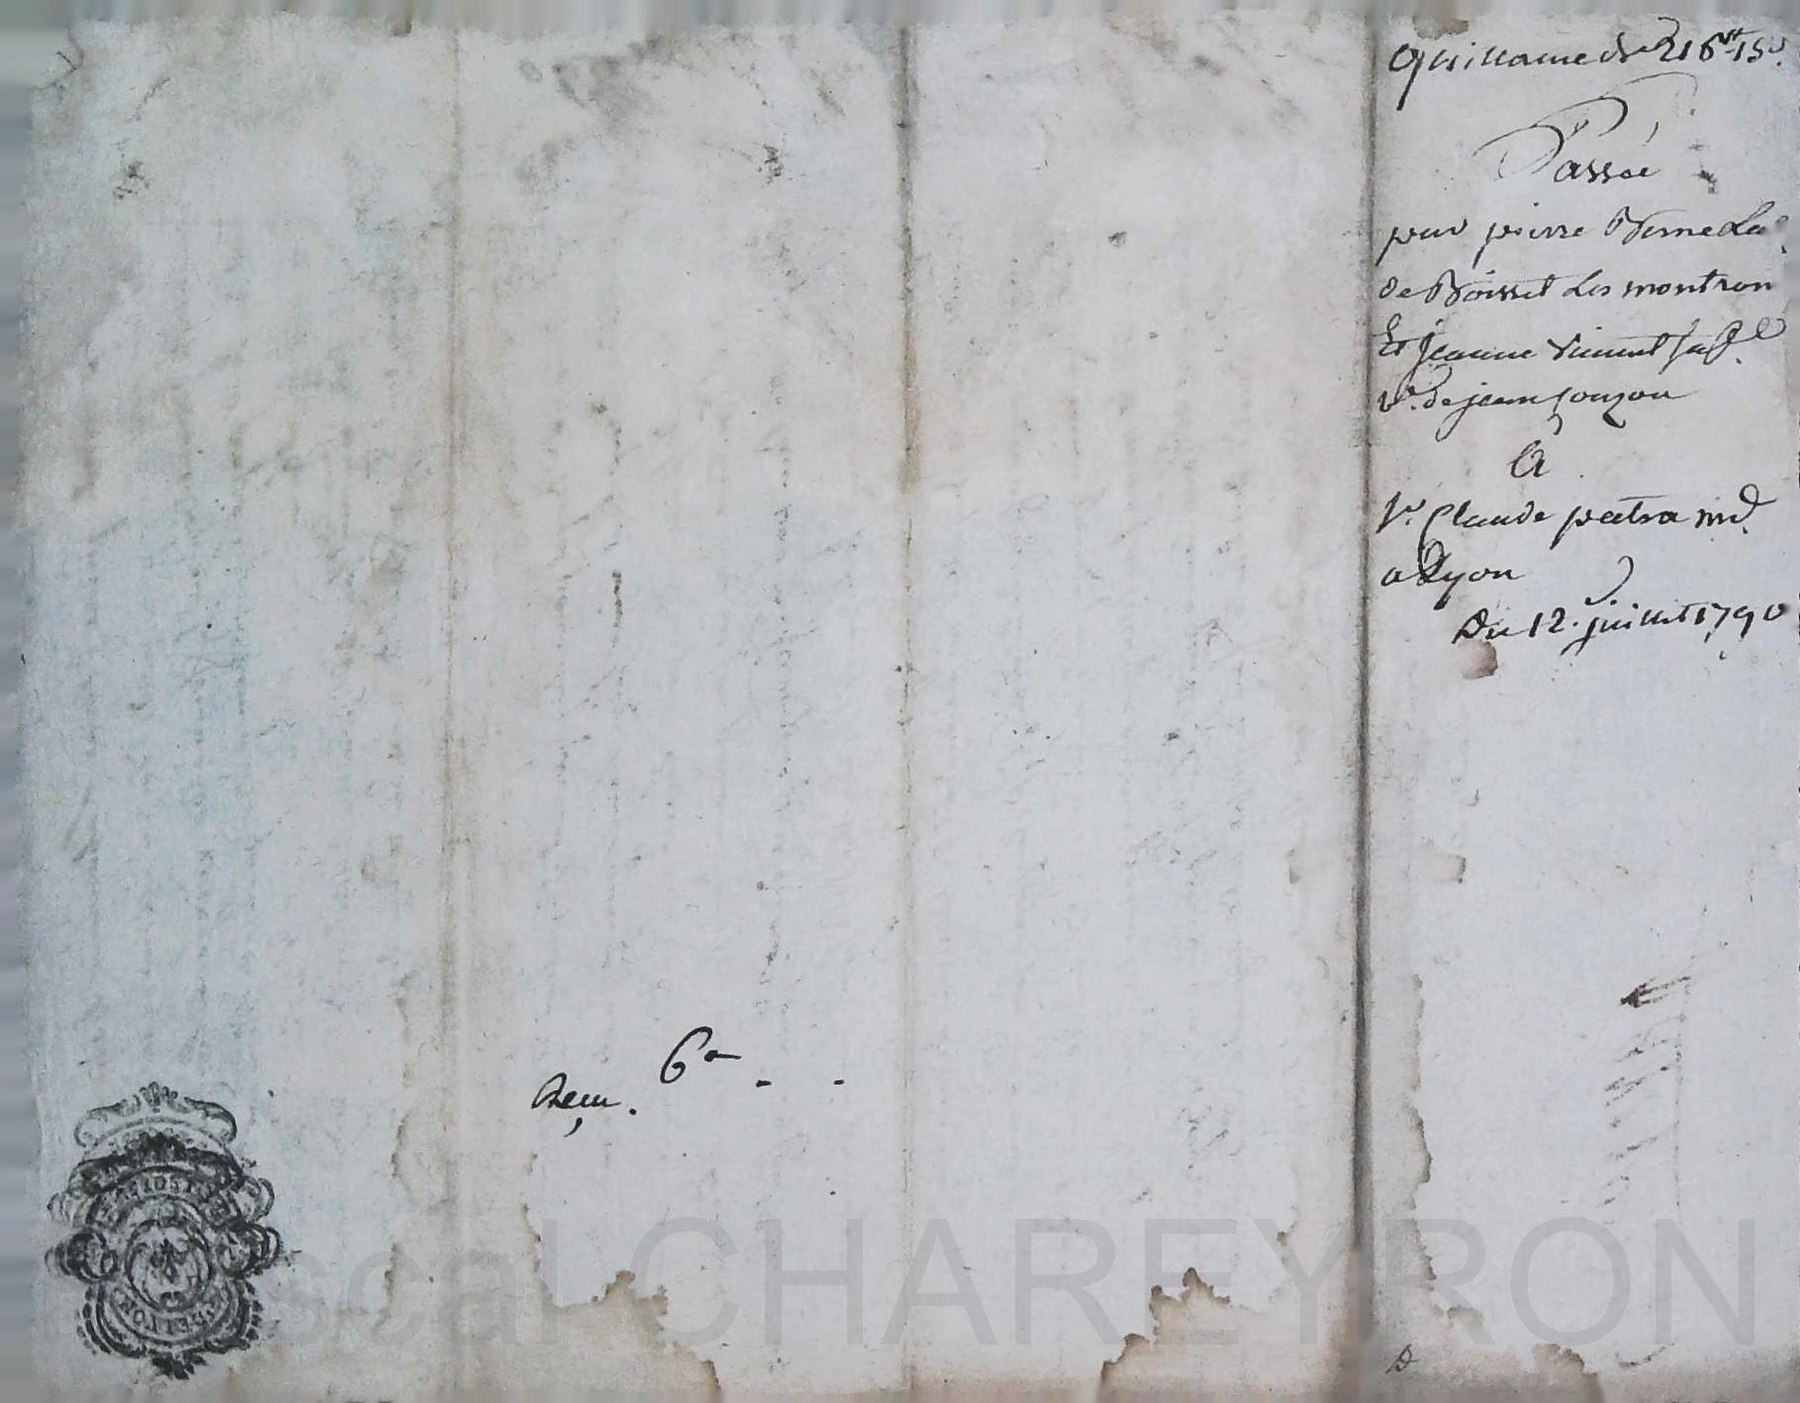 Quittance de 216 lt 15 s.
Passée
par pierre Berne La
de Boisset Les montron
Et jeanne vincent sa f.e
v.e de jean souzon
A
s.r Claude patra m.d
a Lyon
Du 12. juillet 1790
Reçu. 6 - -
scal CHAREYRON